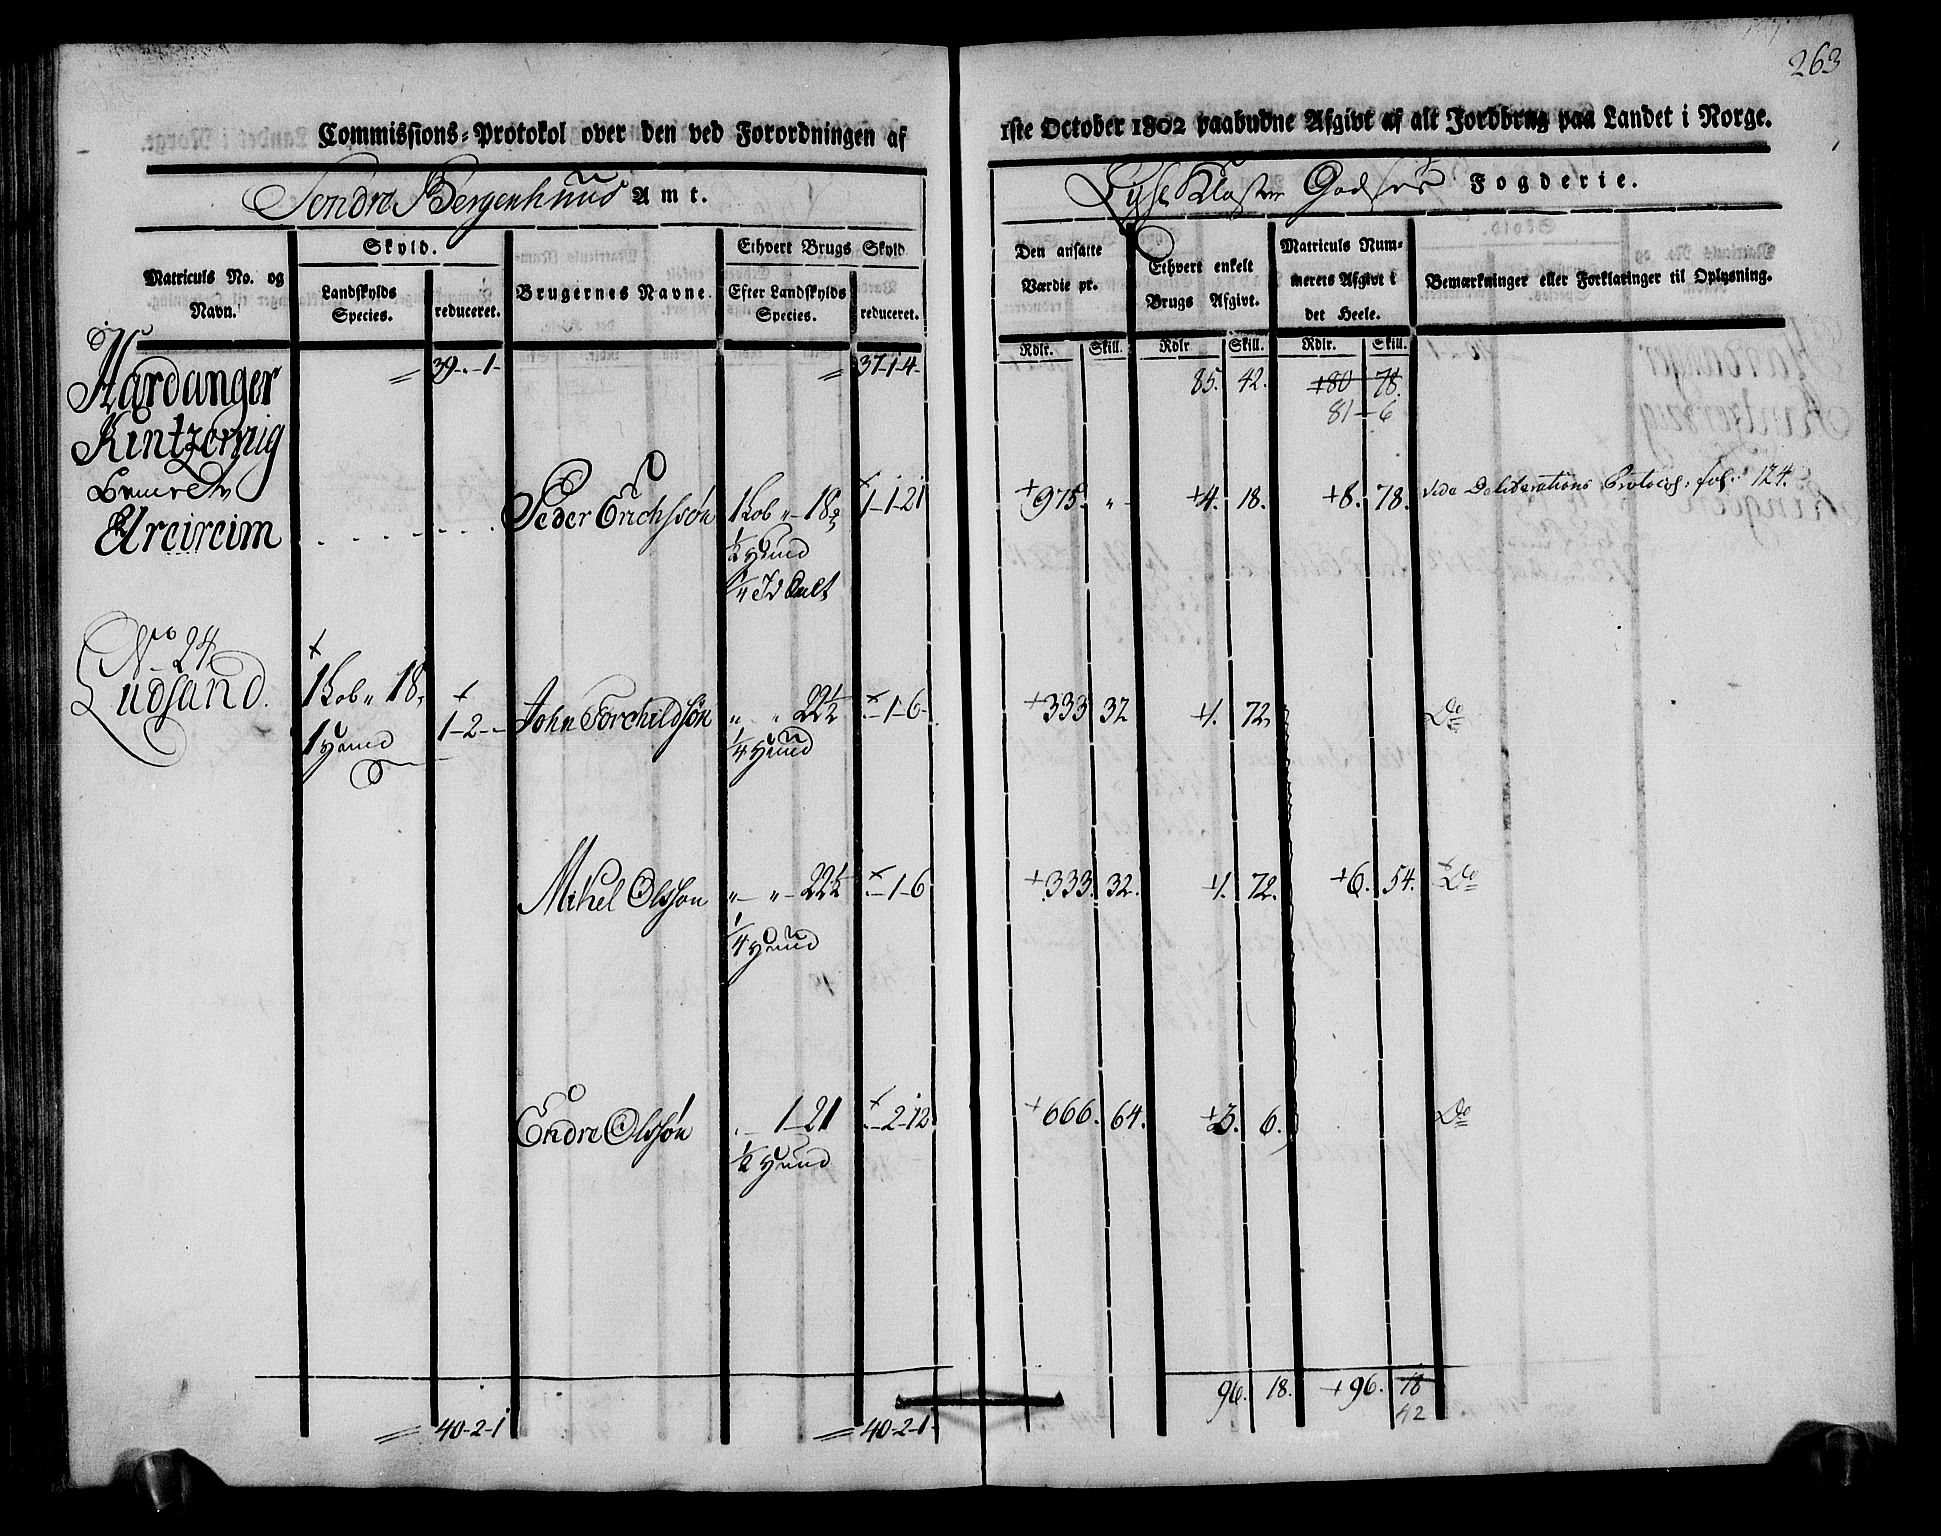 263
Commissions-Protokol over den ved Forordningen af 1ste October 1802 paabudne Afgivt af alt Jordbrug paa Landet i Norge.
Søndre Bergenhuus Amt.
Lyse Kloster Godses Fogderie.
Matriculs No. og Navn.
Skyld.
Landskylds Species.
reduceret.
Brugernes Navne.
Ethvert Brugs Skyld
Efter Landskylds Species.
reduceret.
Den ansatte Værdie pr.
Ethvert enkelt Brugs Afgivt.
Matriculs Nummerets Afgivt i det Heele.
Bemærkninger eller Forklaringer til Oplysning.
Rdlr. Skill. Rdlr Skill. Rdlr. Skill.
Hardanger = 39-"-1- = 37-1-4- 85. 42. +80 78.
81-6
Kintzervig
Peder Erichssøn 1 Kob " 18 1-1-21 +975. "- +4. 18. +8. 78. vide Deliberations Protocol, fol: 124.
Ureireim
1/2 Huud
1/4 Td Salt
No 24
Ludsand.
1 Kob " 18 1-2-- John Torchildsøn "- " 22½ "-1-6- +333 32 +1. 72. Do
1 Huud
1/4 Huud
Mikel Olssøn "- "- 22½ "-1-6 +333. 32. +1. 72. +6. 54. Do
1/4 Huud
Endre Olssøn - 1-21 "-2-12 +666. 64. +3. 6. Do
1/2 Huud
96. 18. +96. 18
42
= 40-2-1 = 40-2-1-